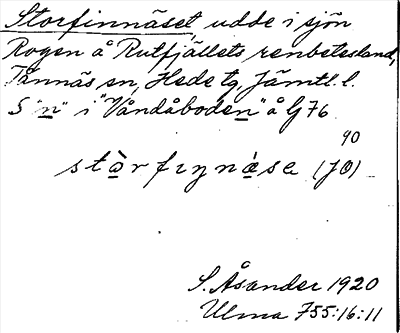 Storfinnäset udde i sjön
Rogen å Rutfjällets renbetesland,
Tännäs sn, Hede tg, Jämtl. l.
S "n" i "Våndåboden" å G 76
90
stòrfɪnnǻse (JO)
S. Åsander 1920
Ulma 755:16:11